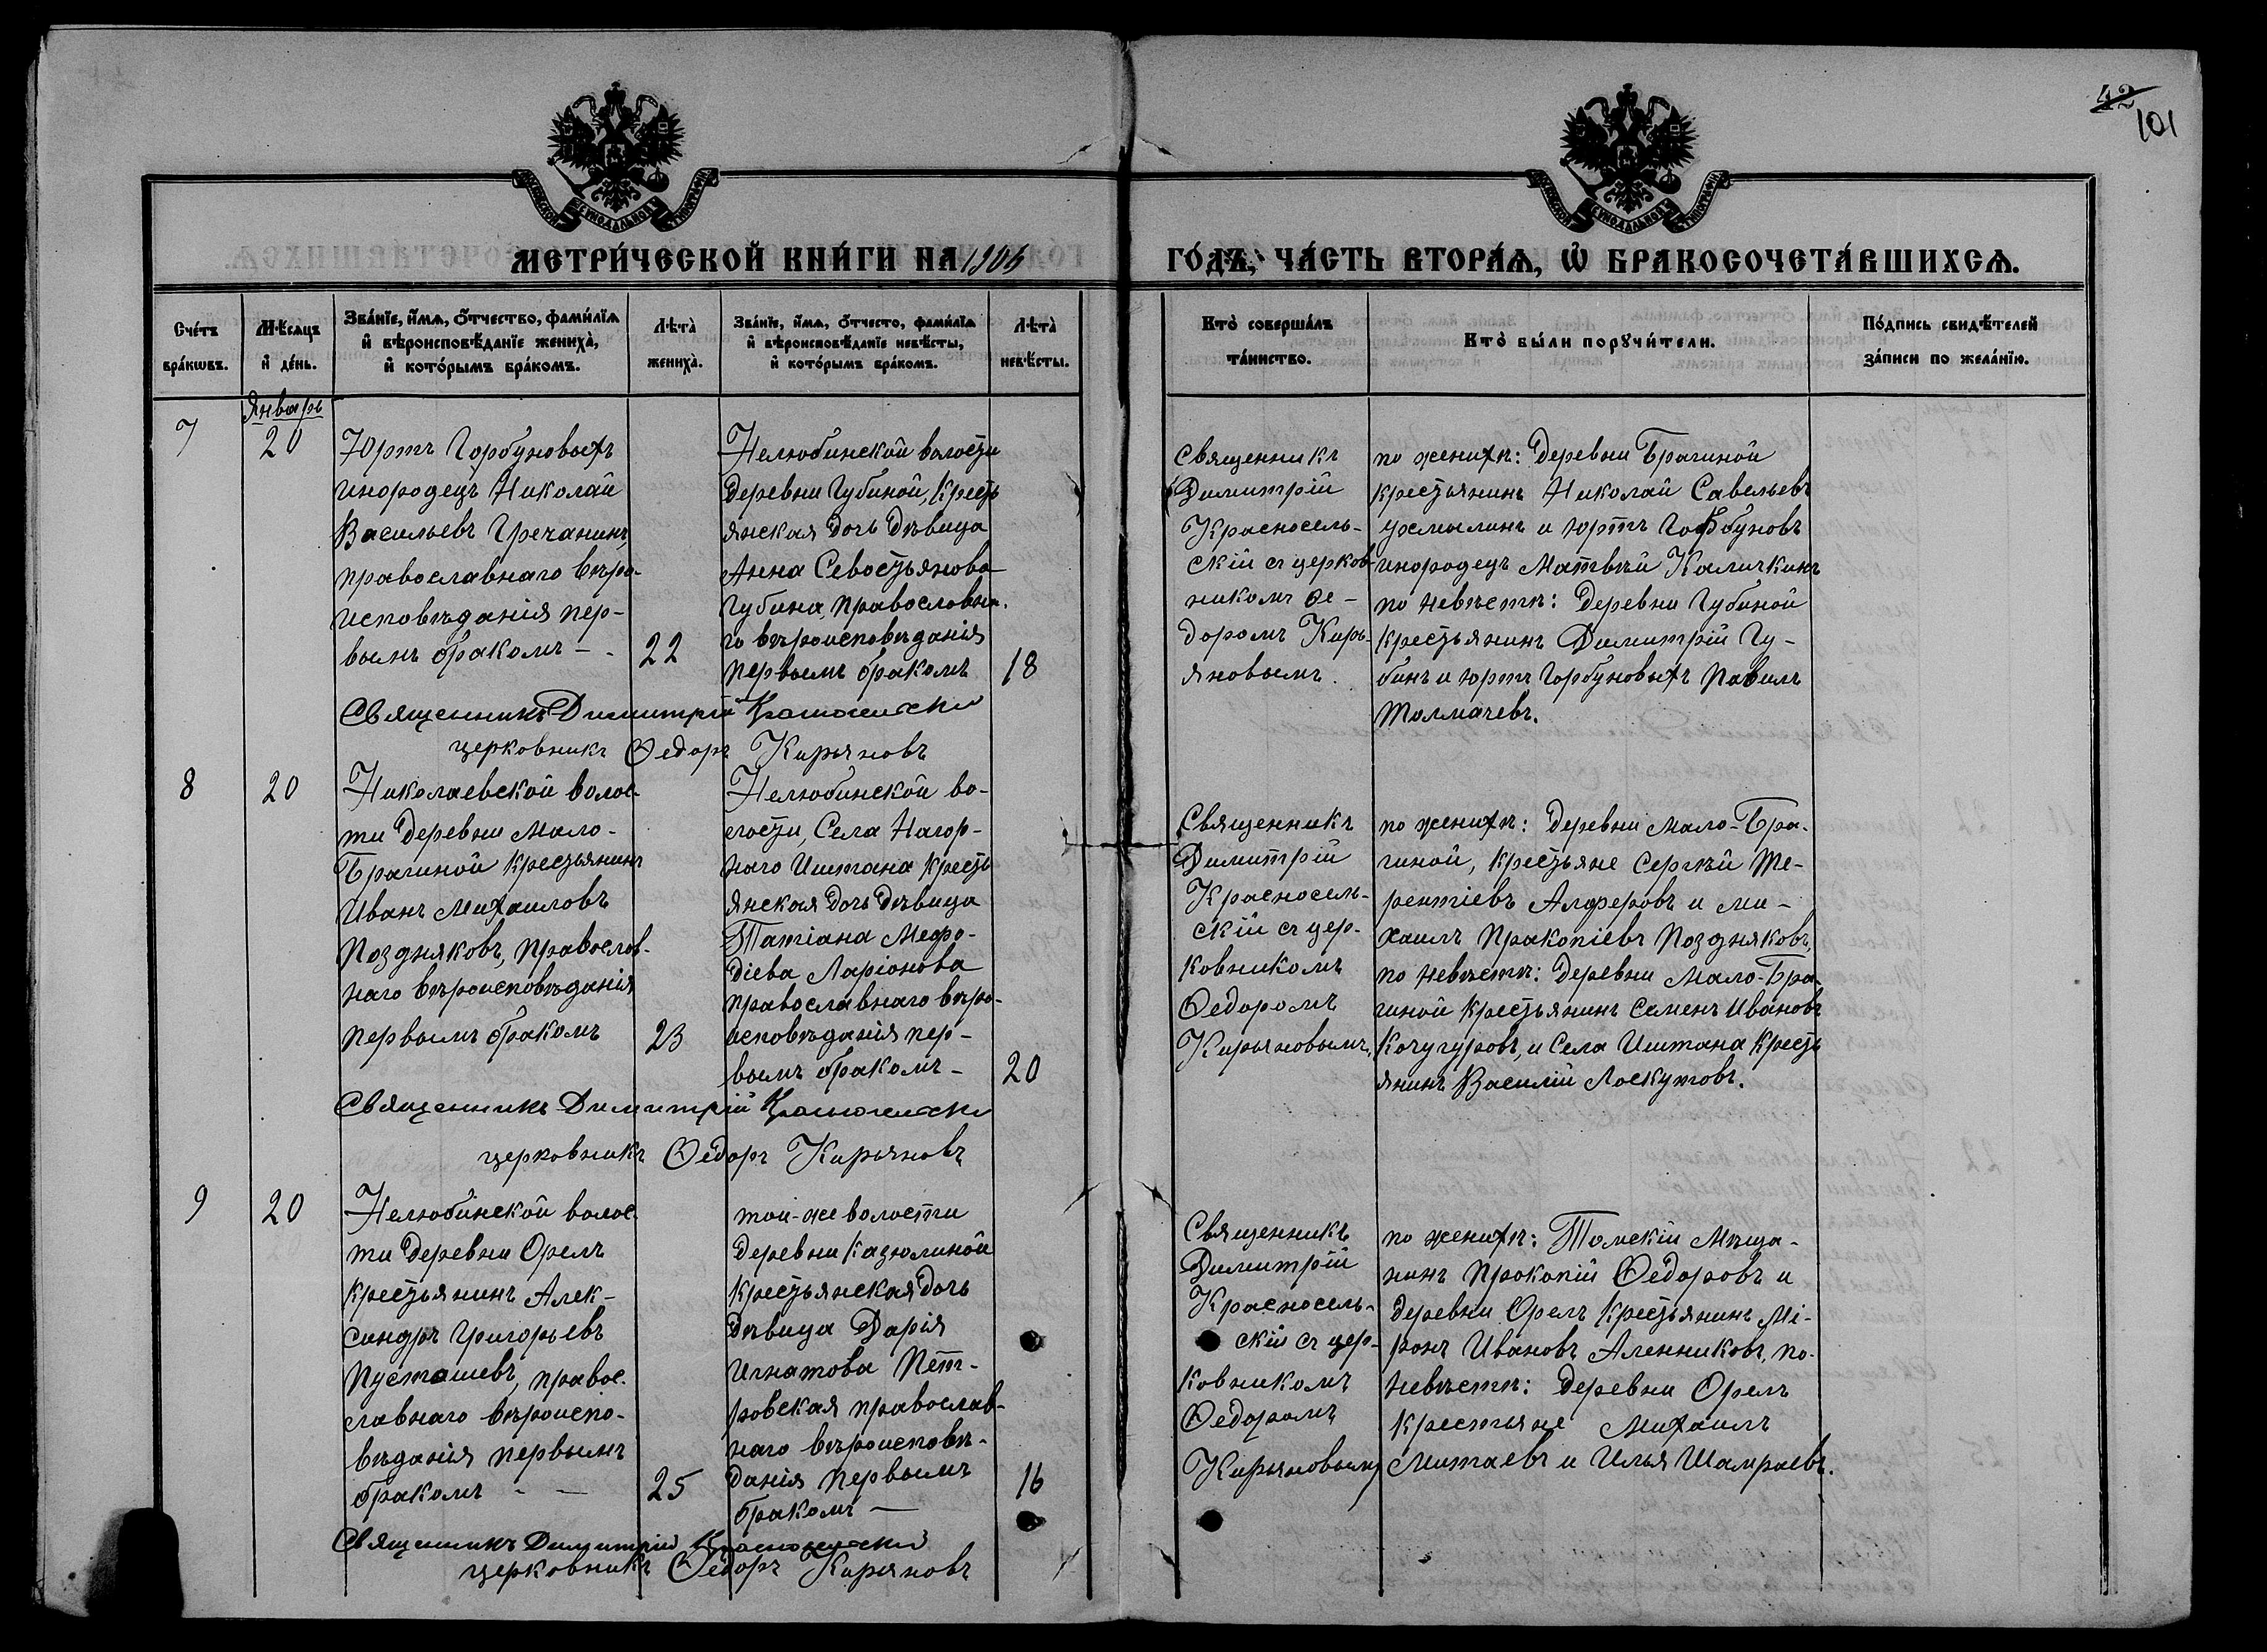 42
101
МЕТРИ́ЧЕСКОЙ КНИ́ГИ НА 1905
ГО́ДЪ, ЧА́СТЬ ВТОРА́Ѧ, Ѡ҆ БРАКОСОЧЕТА́ВШИХСѦ.
Сче́тъ бра́кѡвъ.
Мѣ́сѧцъ и҆ де́нь.
Зва́нїе, и҆́мѧ, ѻ҆́тчество, фами́лїѧ и҆ вѣроисповѣ́данїе жениха̀, и҆ кото́рымъ бра́комъ.
Лѣ́та̀ жениха̀.
Зва́нїе, и҆́мѧ, ѻ҆́тчесто, фами́лїѧ и҆ вѣроисповѣ́данїе невѣ́сты, и҆ кото́рымъ бра́комъ.
Лѣ́та̀ невѣ́сты.
Кто̀ соверша́лъ та́инство.
Кто̀ бы́ли порꙋчи́тели.
По́дпись свидѣ́телей за́писи по жела́нїю.
Январь
7
20
Юртъ Горбуновыхъ
инородецъ Николай
Васильевъ Гречанинъ,
православнаго вѣро-
исповѣданія пер-
вымъ бракомъ - -
22
Нелюбинской волости
деревни Губиной, кресть
янская дочь дѣвица
Анна Севостьянова
Губина, православна-
го вѣроисповѣданія
первымъ бракомъ
18
Священникъ
Димитрій
Красносель-
скій съ церков-
никомъ Ѳе-
доромъ Кирь-
яновымъ.
по женихѣ: деревни Брагиной
крестьянинъ Николай Савельевъ
Усмылинъ и юртъ Горбуновъ
инородецъ Матвѣй Каличкинъ
по невѣстѣ: деревни Губиной
крестьянинъ Димитрій Гу-
бинъ и юртъ Горбуновыхъ Павилъ
Толмачевъ.
Священникъ Димитрій Красносельскій
церковникъ Ѳедоръ Кирьяновъ
8
20
Николаевской волос-
ти деревни Мало-
Брагиной крестьянинъ
Иванъ Михаиловъ
Поздняковъ, православ-
наго вѣроисповѣданія
первымъ бракомъ
23
Нелюбинской во-
лости, Села Нагор-
наго Иштана кресть
янская дочь дѣвица
Татіана Мефо-
діева Ларіонова
православнаго вѣро-
исповѣданія пер-
вымъ бракомъ -
20
Священникъ
Димитрій
Красносель-
скій съ цер-
ковникомъ
Ѳедоромъ
Кирьяновымъ,
по женихѣ: деревни Мало-Бра-
гиной, крестьяне Сергѣй Те-
рентіевъ Алферовъ и Ми-
хаилъ Прокопіевъ Поздняковъ,
по невѣстѣ: деревни Мало-Бра-
гиной крестьянинъ Семенъ Ивановъ
Кочугуровъ, и Села Иштана кресть
янинъ Василій Лоскутовъ.
Священникъ Димитрій Красносельскій
церковникъ Ѳедоръ Кирьяновъ
9
20
Нелюбинской волос-
ти деревни Орелъ
крестьянинъ Алек-
сандръ Григорьевъ
Пусташевъ, правос-
лавнаго вѣроиспо-
вѣданія первымъ
бракомъ - —
25
той-же волости
деревни Казюлиной
крестьянская дочь
дѣвица Дарія
Игнатова Пет-
ровская православ-
наго вѣроисповѣ-
данія первымъ
бракомъ —
16
Священникъ
Димитрій
Красносель-
скій съ цер-
ковникомъ
Ѳедоромъ
Кирьяновымъ
по женихѣ: Томскій Мѣща-
нинъ Прокопій Ѳедоровъ и
деревни Орелъ крестьянинъ Мі-
ронъ Ивановъ Аленниковъ, по-
невѣстѣ: деревни Орелъ
крестьяне Михаилъ
Митаевъ и Илья Шамраевъ.
Священникъ Димитрій Красносельскій
церковникъ Ѳедоръ Кирьяновъ